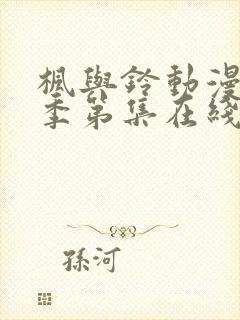 楓與鈴動漫
季第集在綫
孫河